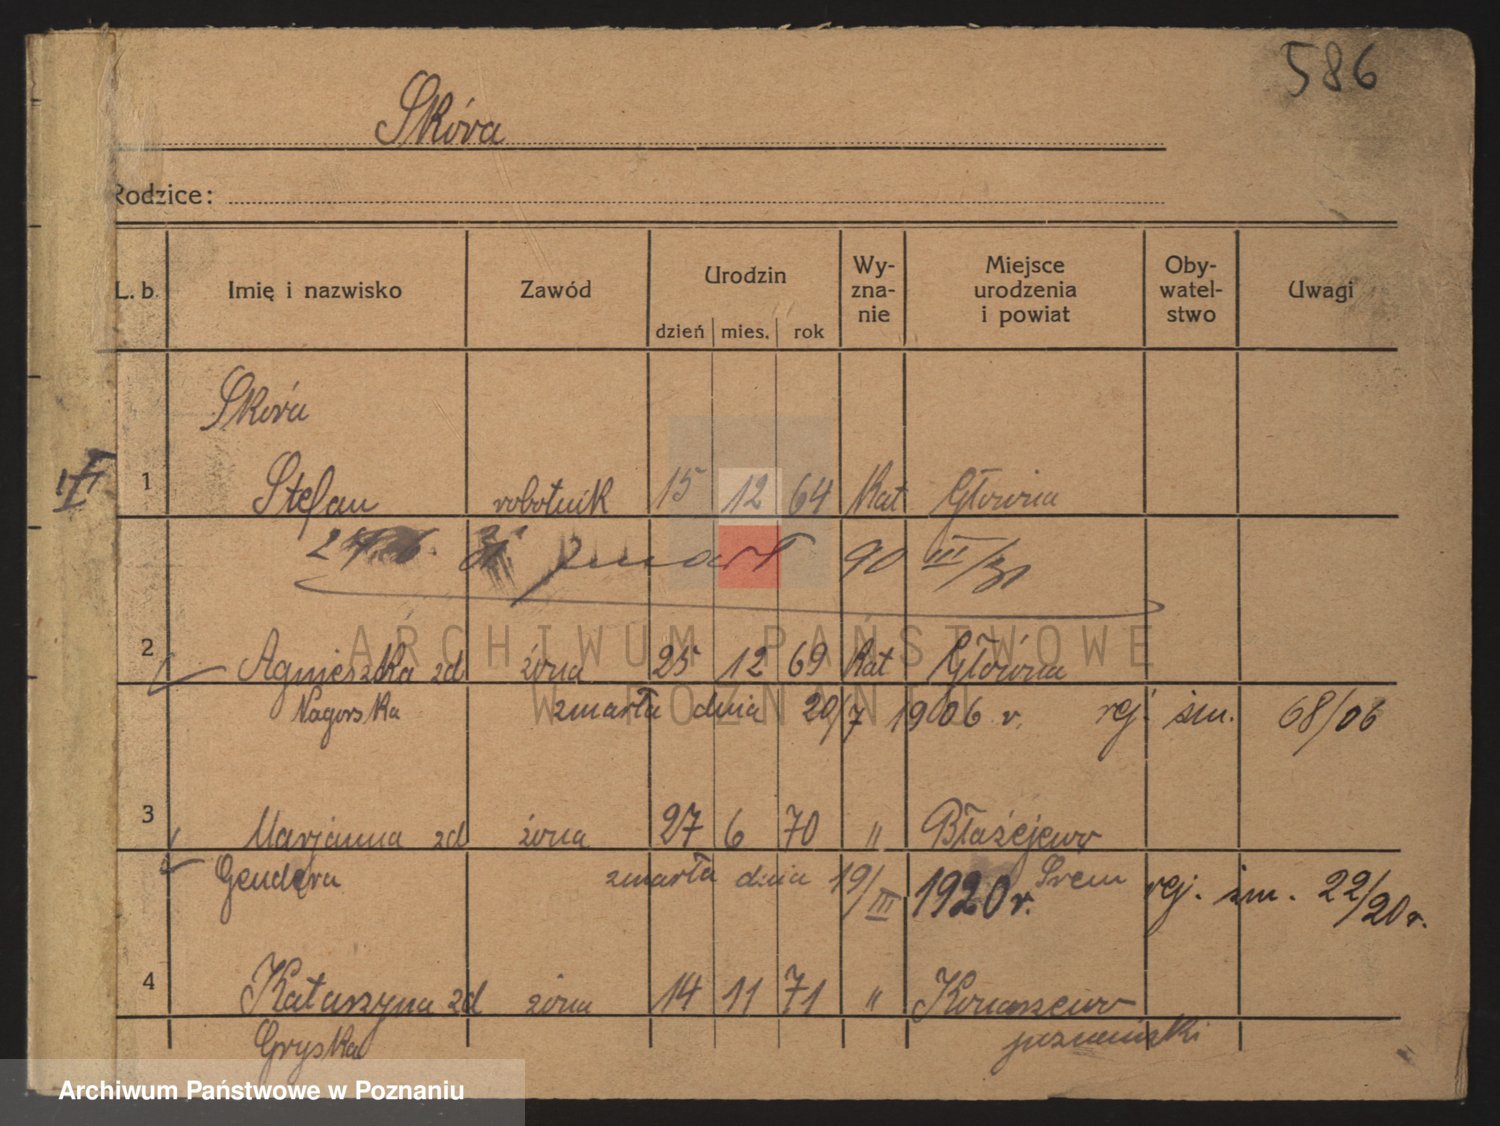 586
Skóra
Rodzice:
L. b. Imię i nazwisko Zawód Urodzin dzień mies. rok Wy-zna-nie Miejsce urodzenia i powiat Oby-watel-stwo Uwagi
Skóra
1 Stefan robotnik 15 12 64 Kat Główna
zmarł III/31
2 Agnieszka zd żona 25 12 69 Kat Główna
Nagorska zmarła dnia 20/7 1906 r. rej. zm. 68/06
3 Marjanna zd żona 27 6 70 " Błażejewo
Gendera zmarła dnia 19/III 1920 r. Śrem rej. zm. 22/20 r.
4 Katarzyna zd żona 14 11 71 " Konarzewo
Gryska poznański
ARCHIWUM PAŃSTWOWE
W POZNANIU
Archiwum Państwowe w Poznaniu